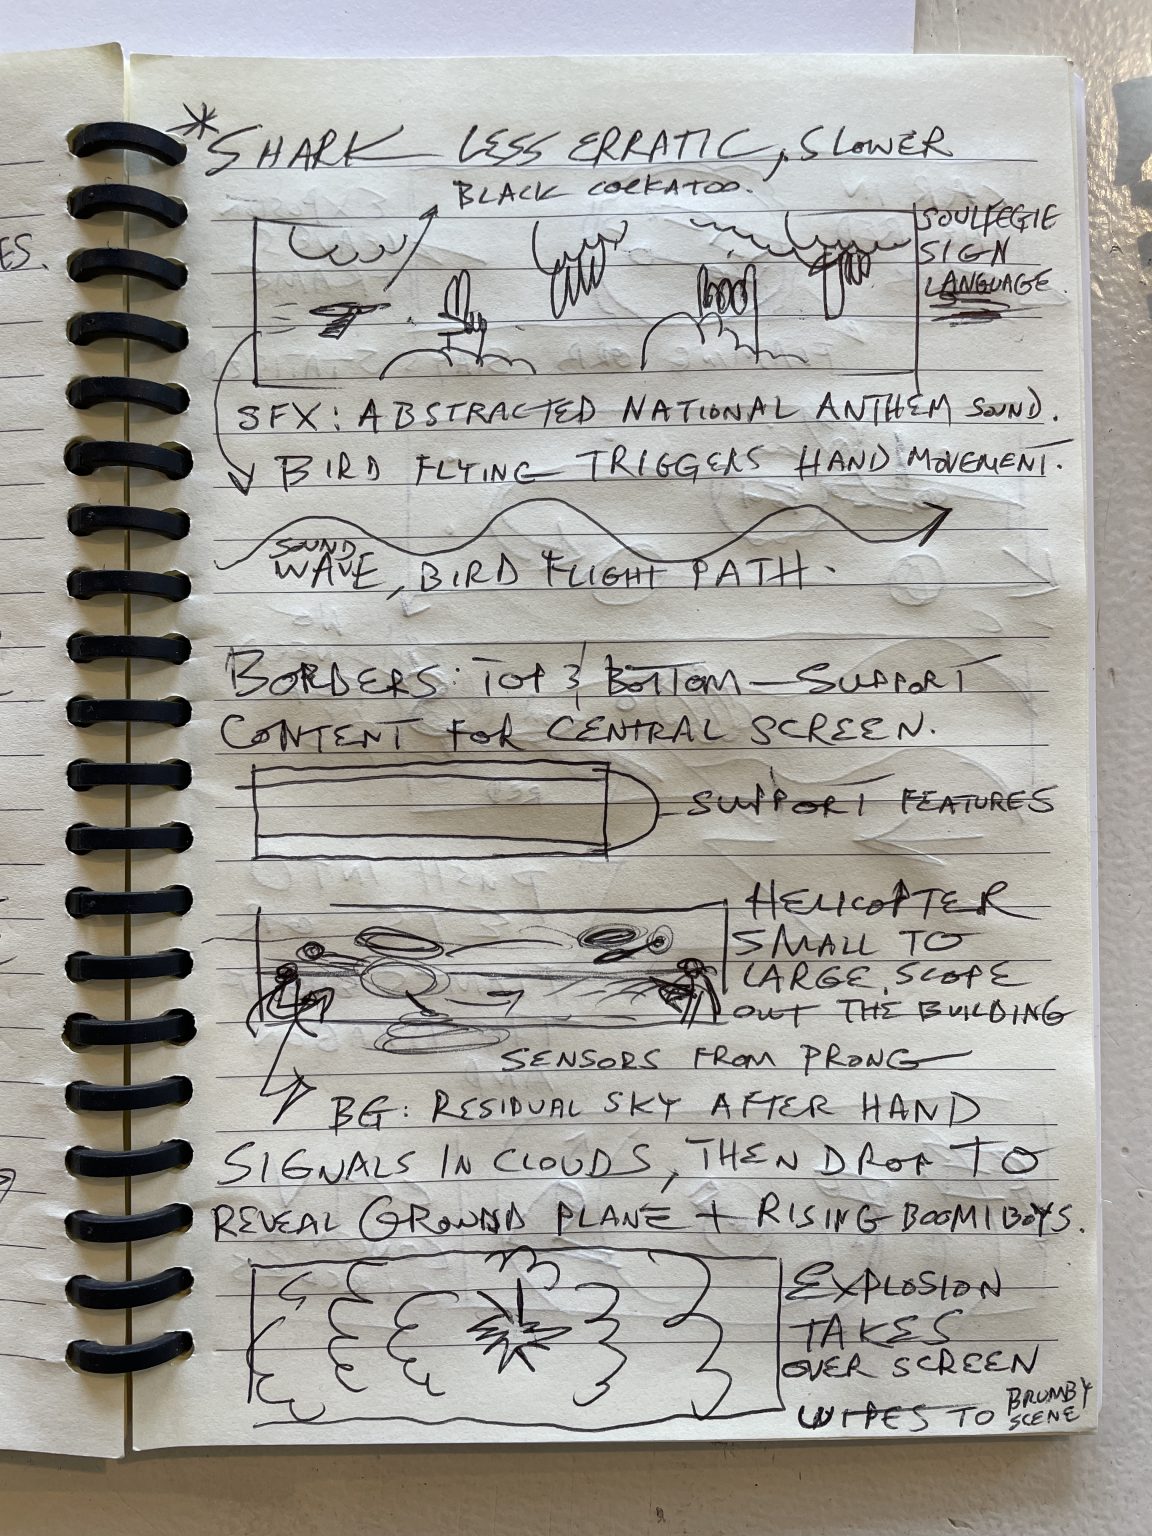 ES.
*SHARK LESS ERRATIC, SLOWER
BLACK COCKATOO.
SOULFEGIE
SIGN
LANGUAGE.
SFX: ABSTRACTED NATIONAL ANTHEM SOUND.
BIRD FLYING TRIGGERS HAND MOVEMENT.
SOUND
WAVE, BIRD FLIGHT PATH.
BORDERS: TOP & BOTTOM - SUPPORT
CONTENT FOR CENTRAL SCREEN.
SUPPORT FEATURES
HELICOPTER
SMALL TO
LARGE, SCOPE
OUT THE BUILDING
SENSORS FROM PRONG
BG: RESIDUAL SKY AFTER HAND
SIGNALS IN CLOUDS, THEN DROP TO
REVEAL GROUND PLANE + RISING BOOMIBOYS.
EXPLOSION
TAKES
OVER SCREEN
WIPES TO BRUMBY
SCENE